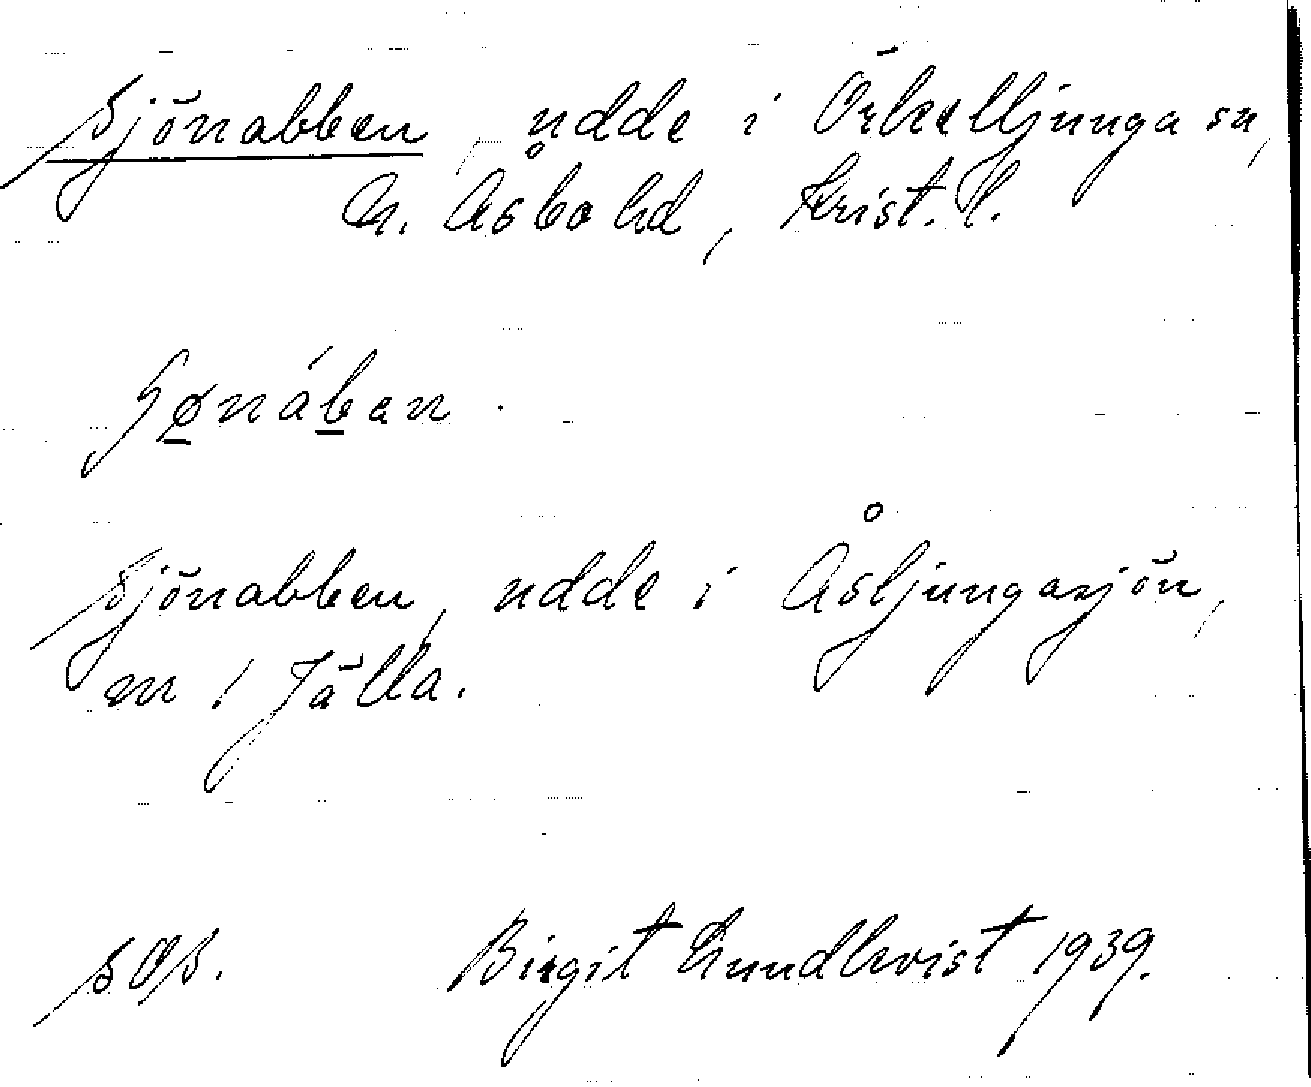 Sjönabben, udde i Örkelljunga sn,
N. Åsbo hd, Krist. l.
Sjönabben, udde i Åsljungasjön,
Jälla.
Birgit Lundkvist 1939.